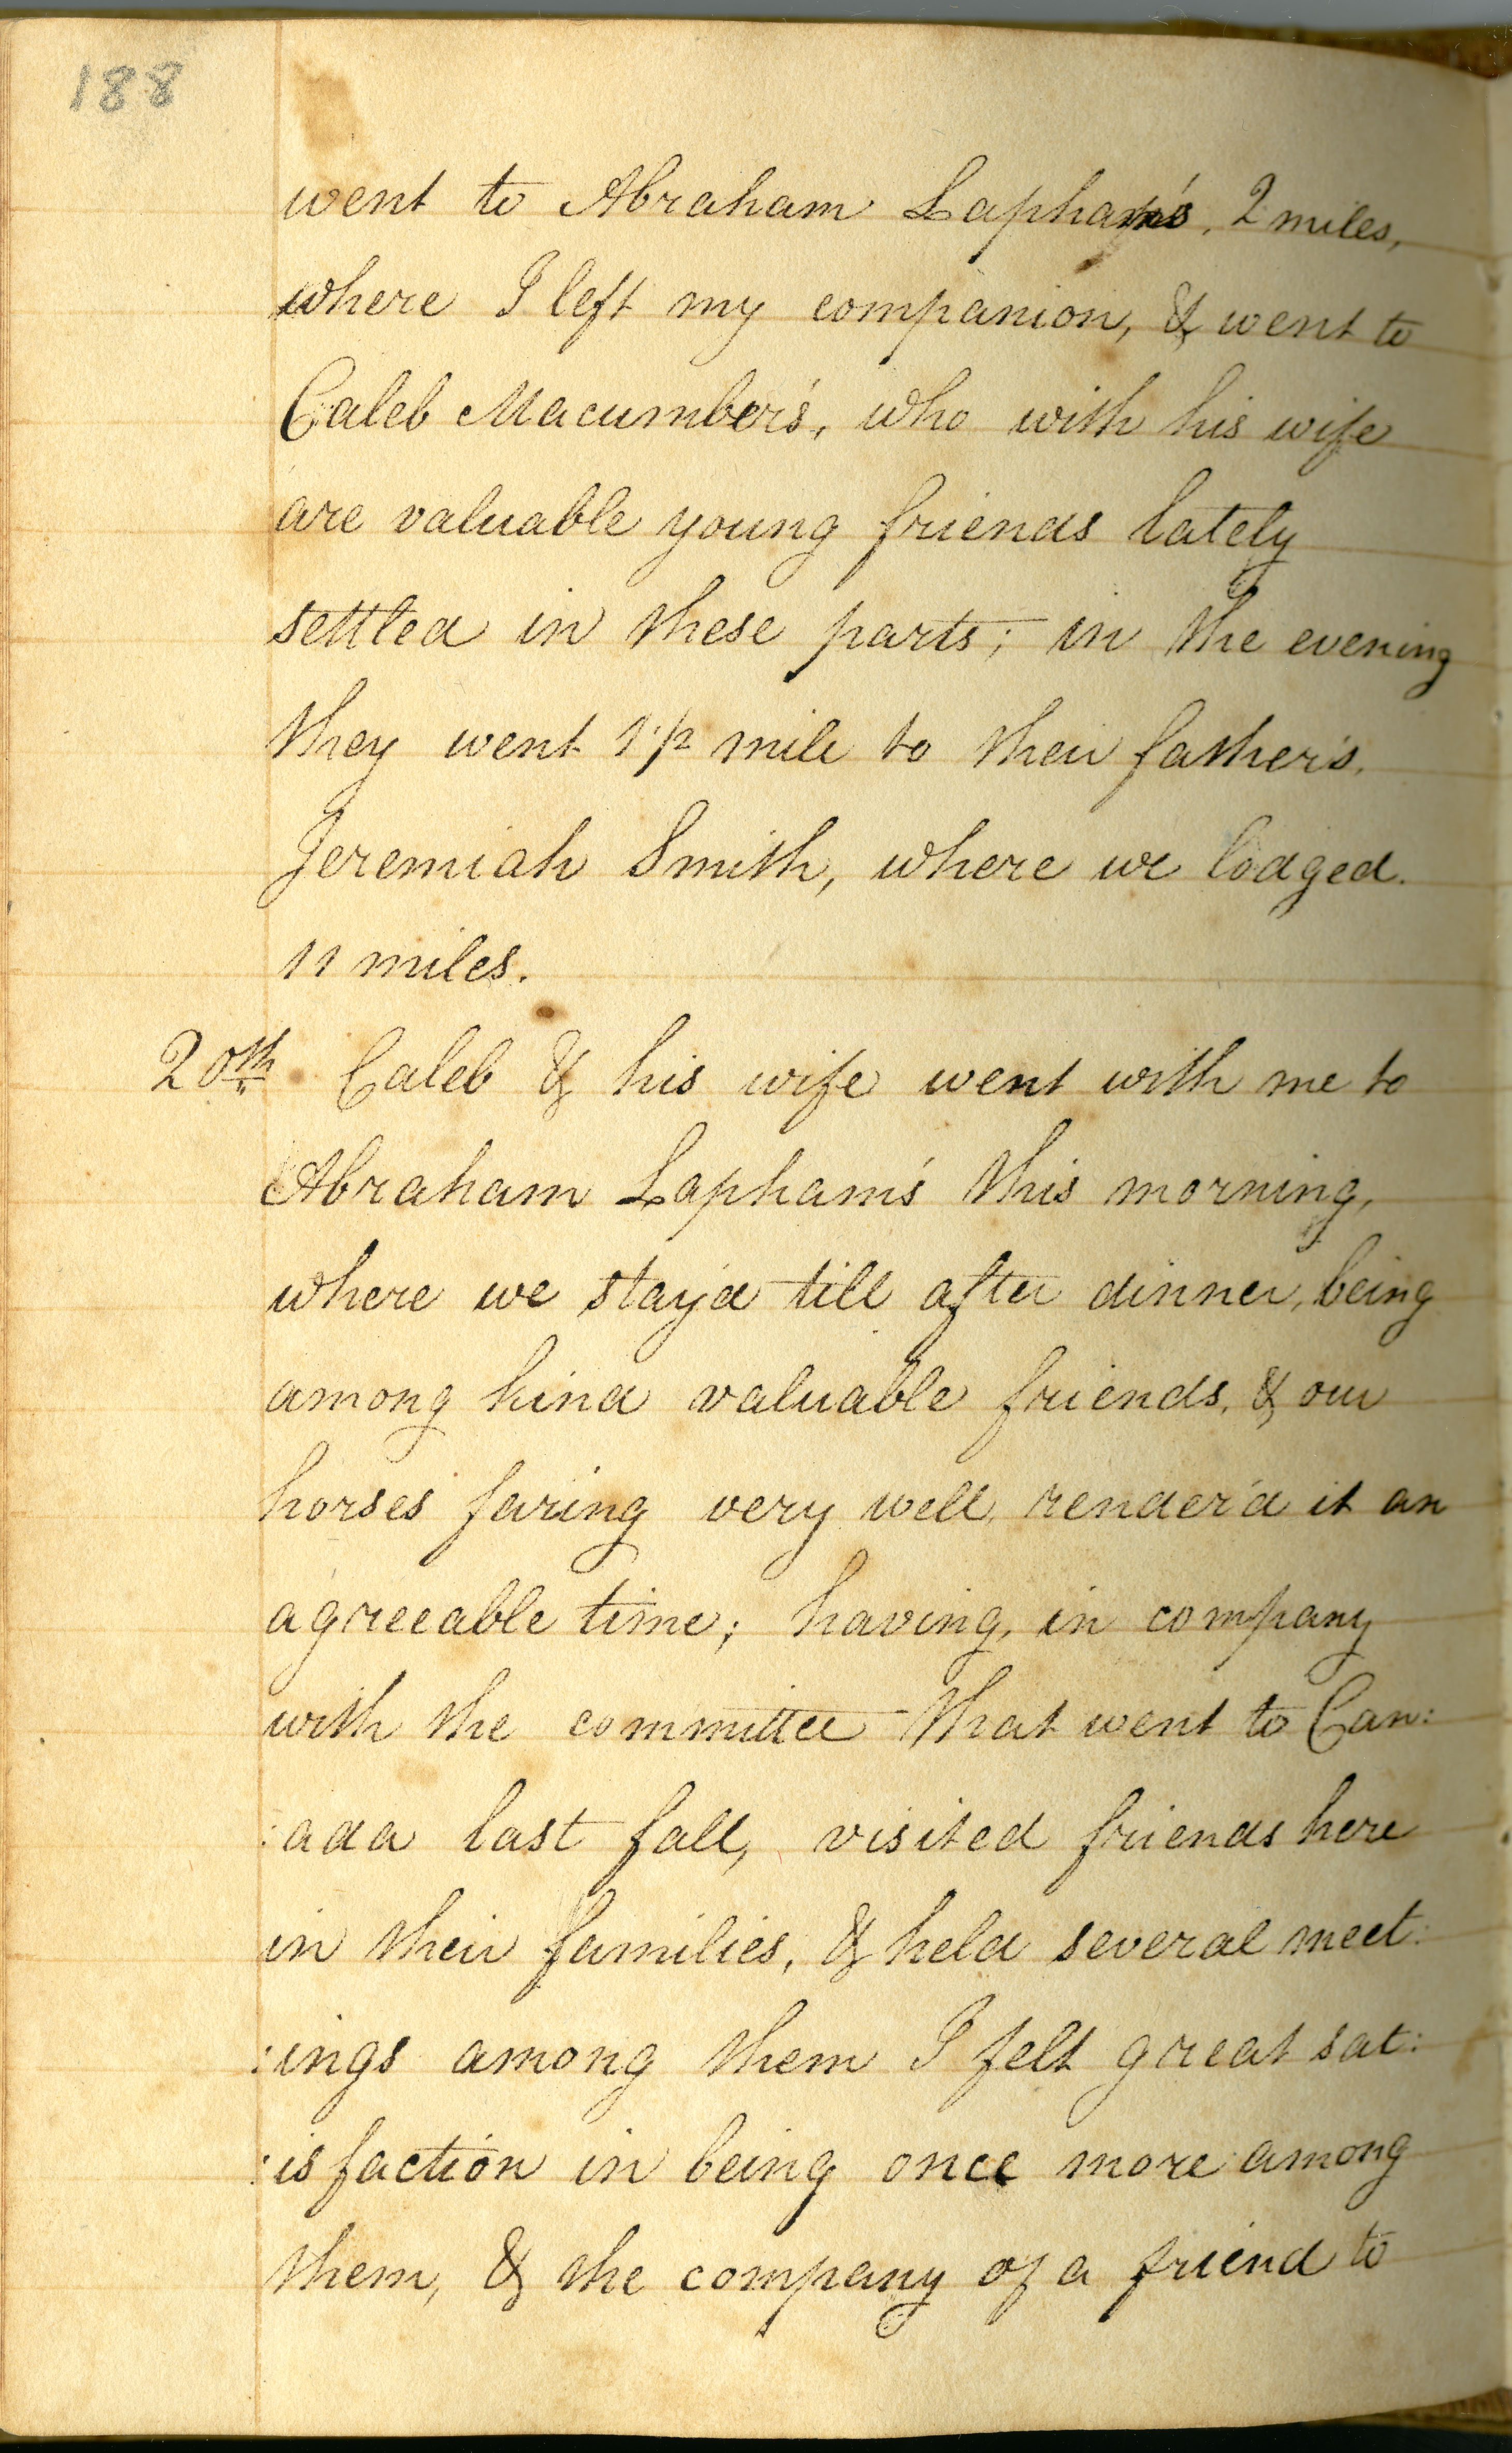 188
went to Abraham Lapham's, 2 miles,
where I left my companion, & went to
Caleb Macumber's, who with his wife
are valuable young friends lately
settled in these parts; in the evening
they went 1 1/2 mile to their father's,
Jeremiah Smith, where we lodged.
11 miles.
20th Caleb & his wife went with me to
Abraham Lapham's this morning,
where we stay'd till after dinner, being
among kind valuable friends, & our
horses faring very well, render'd it an
agreeable time; having, in company
with the committee that went to Can:
:ada last fall, visited friends here
in their families, & held several meet:
:ings among them I felt great sat:
:isfaction in being once more among
them, & the company of a friend to